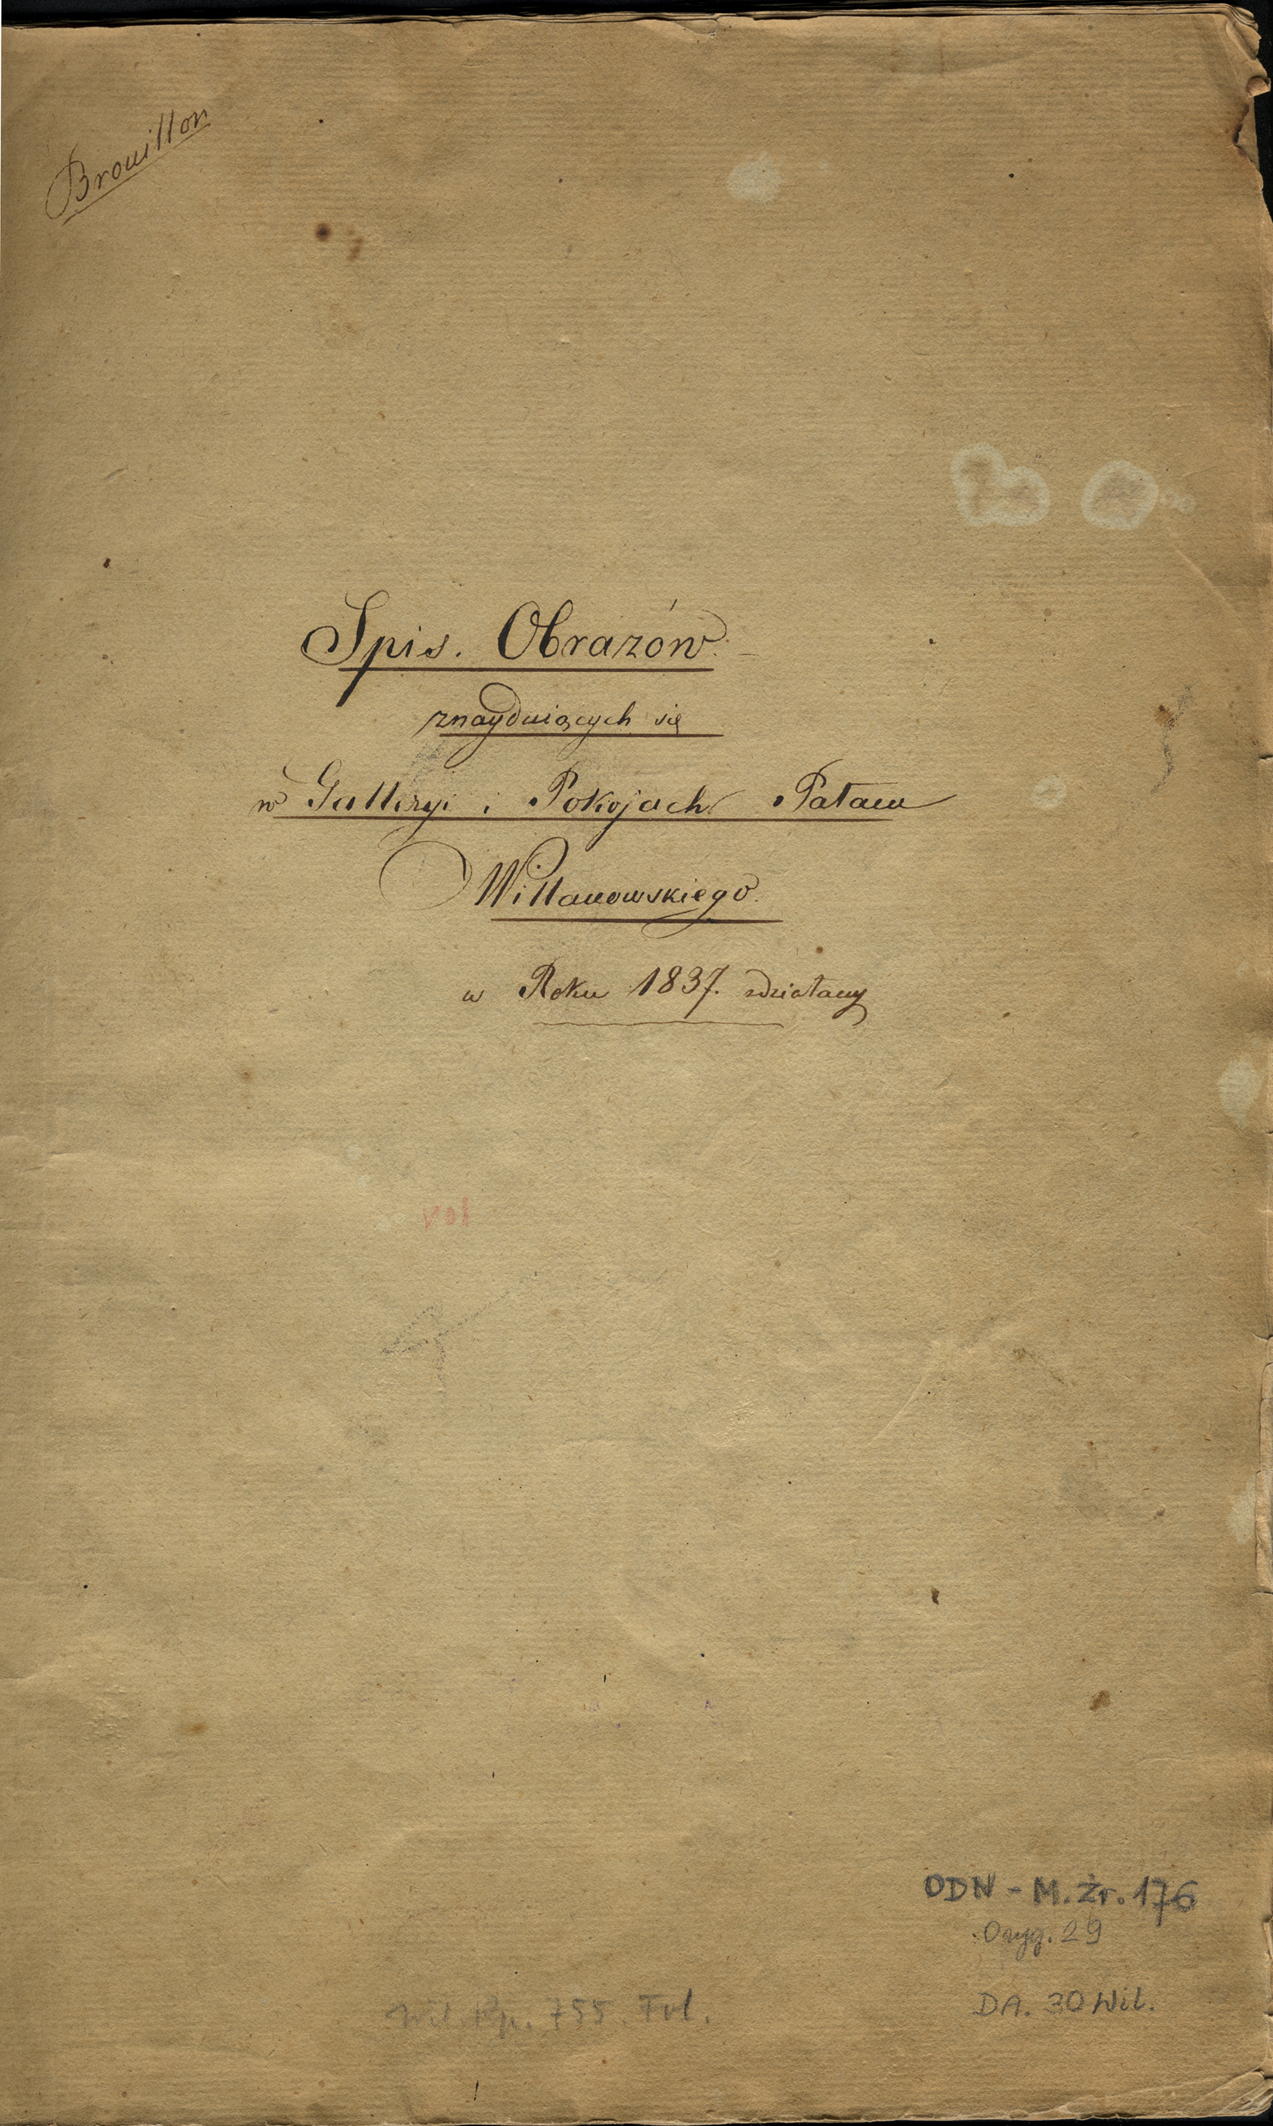 Brouillon
Spis. Obrazów.
znayduiących się
w Galleryi i Pokojach Pałacu
Willanowskiego.
w Roku 1837. zdziałany
ODN - M. Źr. 176
Oryg. 29
DA. 30 Wil.
Wil. Rp. 755. Fol.